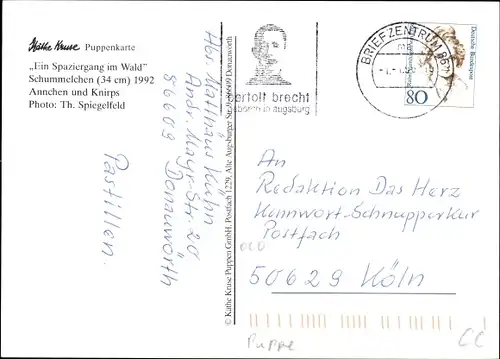 Käthe Kruse Puppenkarte
„Ein Spaziergang im Wald"
Schummelchen (34 cm) 1992
Annchen und Knirps
Photo: Th. Spiegelfeld
Pastillen.
Abs. Matthäus Kühn
Andr.-Mayr-Str. 20
86609 Donauwörth
© Käthe Kruse Puppen GmbH, Postfach 1229, Alte Augsburger Str. 9, 86609 Donauwörth
bertolt brecht
geboren in augsburg
BRIEFZENTRUM 86
ma
Deutsche Bundespost
80
An
Redaktion Das Herz
Kennwort-Schnupperkur
Postfach
50629 Köln
Puppe
CC